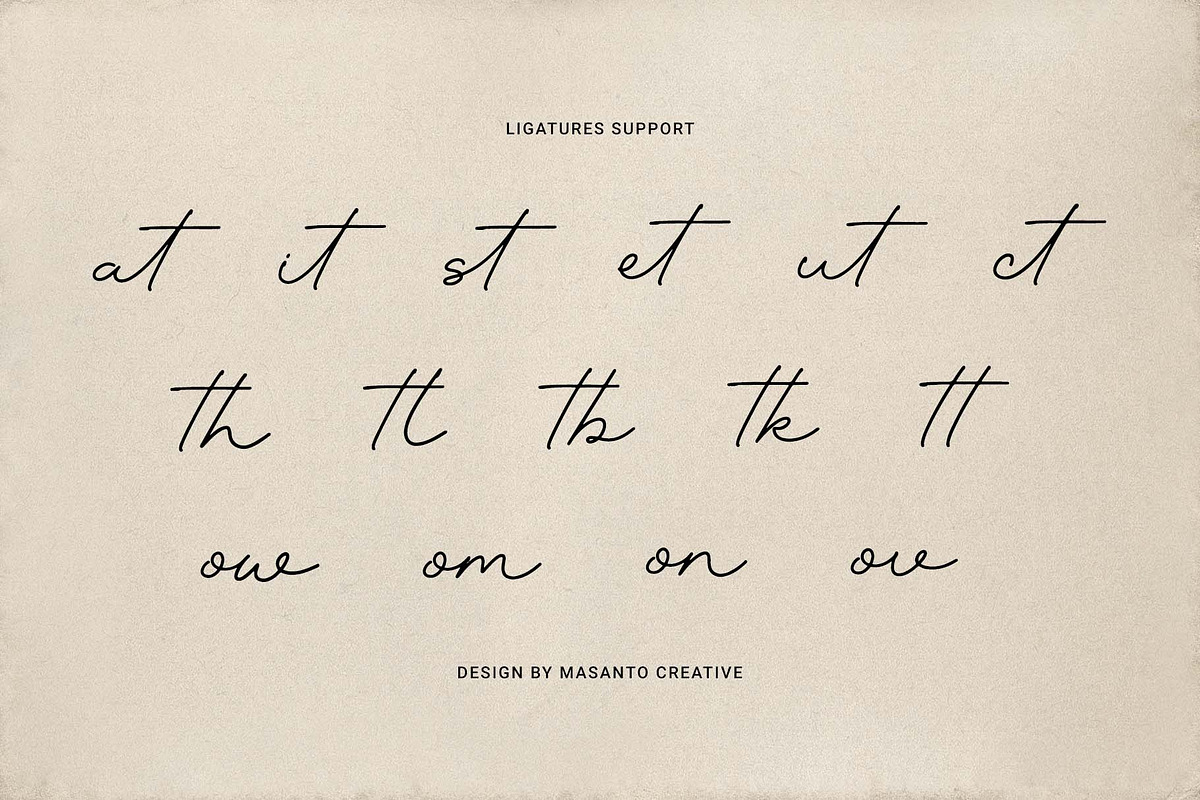 LIGATURES SUPPORT
at it st et ut ct
th tl tb tk tt
ow om on ov
DESIGN BY MASANTO CREATIVE